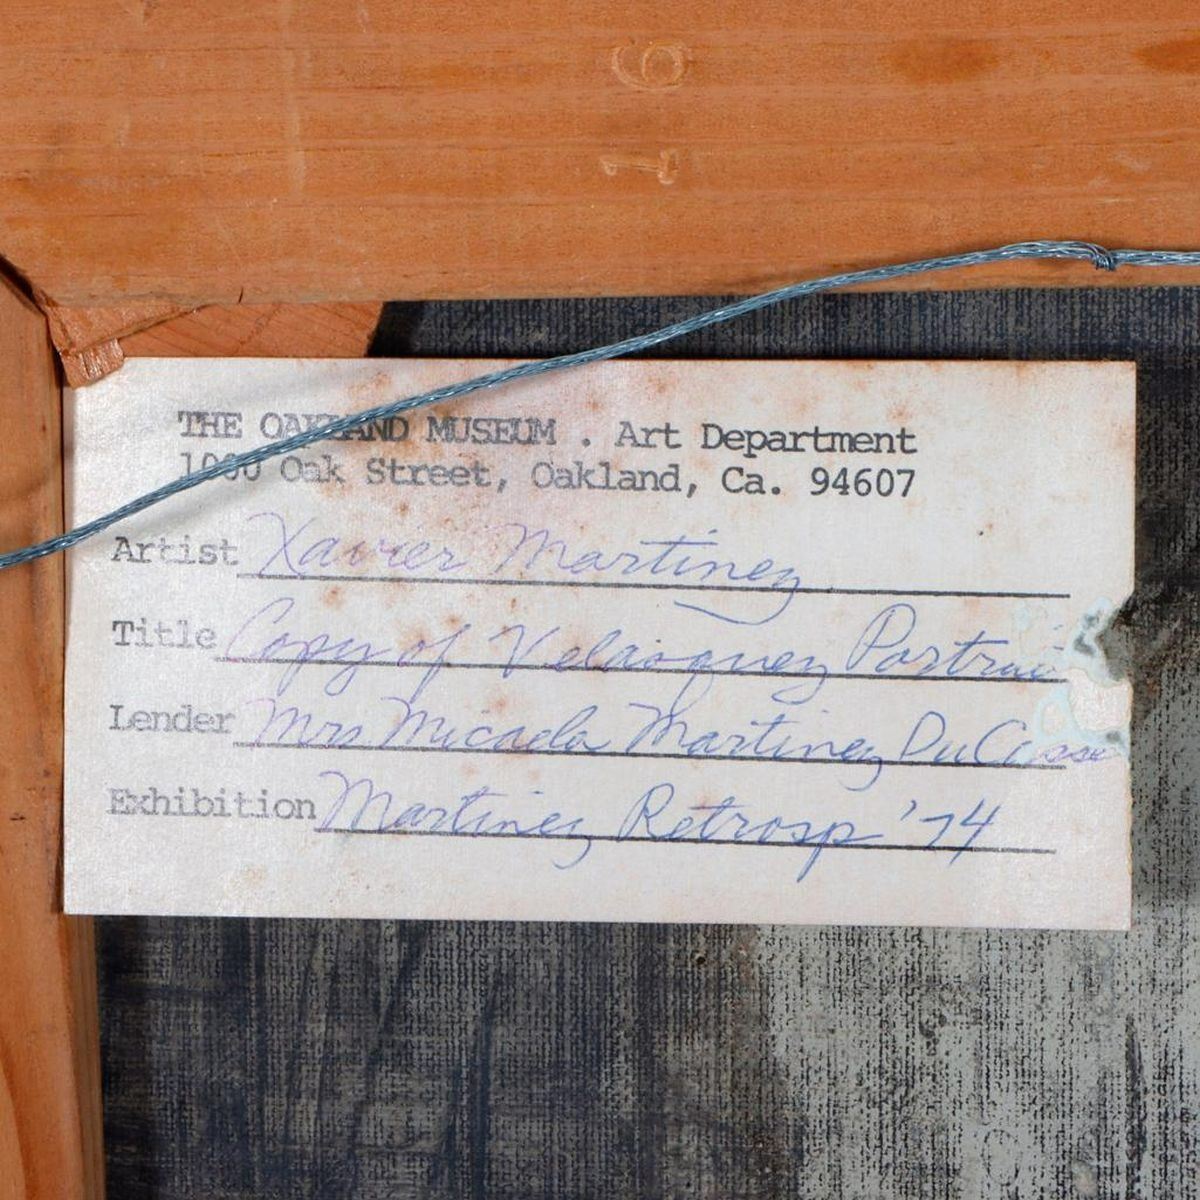 6
1
THE OAKLAND MUSEUM . Art Department
1000 Oak Street, Oakland, Ca. 94607
Artist Xavier Martinez
Title Copy of Velasquez Portrait
Lender Mrs Micaela Martinez DuCasse
Exhibition Martinez Retrosp '74